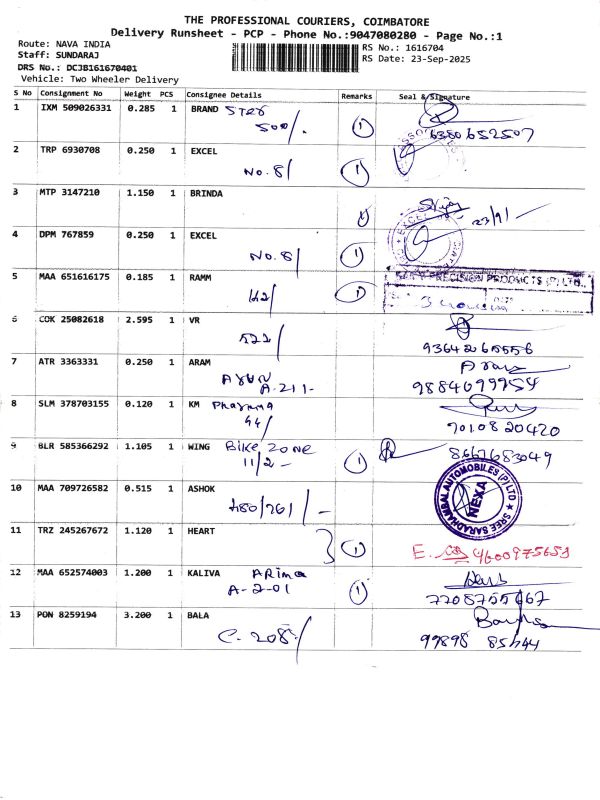 THE PROFESSIONAL COURIERS, COIMBATORE
Delivery Runsheet - PCP - Phone No.:9047080280 - Page No.:1
Route: NAVA INDIA
Staff: SUNDARAJ
DRS No.: DCJB161670401
Vehicle: Two Wheeler Delivery
RS No.: 1616704
RS Date: 23-Sep-2025
S No Consignment No Weight PCS Consignee Details Remarks Seal & Signature
1 IXM 509026331 0.285 1 BRAND
500/. 1 6380652507
2 TRP 6930708 0.250 1 EXCEL
No. 8/ 1
3 MTP 3147210 1.150 1 BRINDA
1 23/9/-
4 DPM 767859 0.250 1 EXCEL
No. 8/ 1
EXCEL
5 MAA 651616175 0.185 1 RAMM
1 PRECISION PRODUCTS (P) LTD.,
6 COK 25082618 2.595 1 VR
522/ 9364265556
7 ATR 3363331 0.250 1 ARAM
A.211- 9884699954
8 SLM 378703155 0.120 1 KM Pharma
44/ 7010820420
9 BLR 585366292 1.105 1 WING Bike Zone
11/2- 1 8667683049
10 MAA 709726582 0.515 1 ASHOK
480/261/-
SREE SARADHAMBAL AUTOMOBILES (P) LTD
NEXA
11 TRZ 245267672 1.120 1 HEART
1 4600975653
12 MAA 652574003 1.200 1 KALIVA Arima
A-2-01 1
13 PON 8259194 3.200 1 BALA
C. 208/ 99898 85444